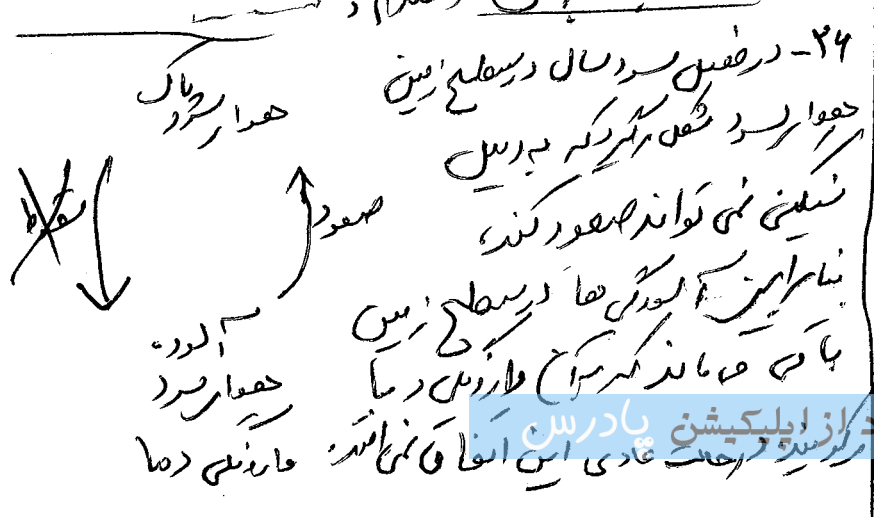 ۳۶- در فصل سرد سال در سطح زمین
هوای سرد شکل می‌گیرد که به دلیل
سنگینی نمی تواند صعود کند،
بنابراین آلودگی ها در سطح زمین
باقی می ماند که به آن وارونگی دما
می گویند. در حالت عادی این اتفاق نمی افتد.
هوای سرد پاک
صعود
سقوط
آلوده
هوای سرد
وارونگی دما
د از اپلیکیشن پادرس